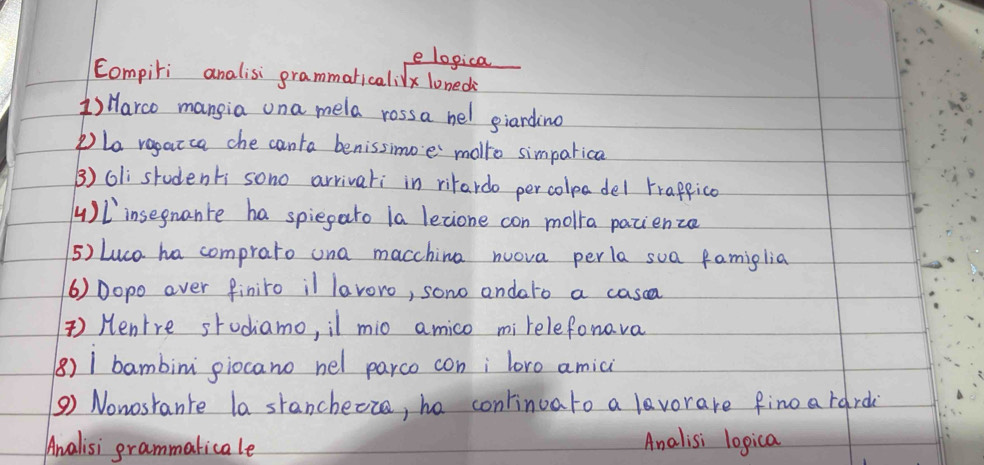 e logica
Compiti analisi grammaticali x lunedì
1) Marco mangia una mela rossa nel giardino
2) La ragazza che canta benissimo è molto simpatica
3) Gli studenti sono arrivati in ritardo per colpa del traffico
4) L'insegnante ha spiegato la lezione con molta pazienza
5) Luca ha comprato una macchina nuova per la sua famiglia
6) Dopo aver finito il lavoro, sono andato a casa
7) Mentre studiamo, il mio amico mi telefonava
8) i bambini giocano nel parco con i loro amici
9) Nonostante la stanchezza, ha continuato a lavorare fino a tardi
Analisi grammaticale Analisi logica